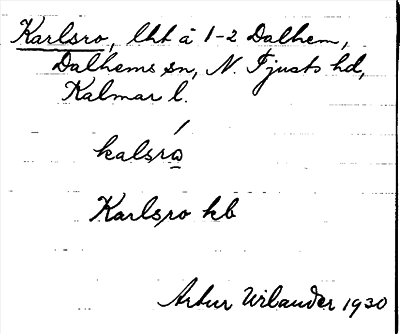 Karlsro, lht å 1-2 Dalhem,
Dalhems sn, N. Tjusts hd,
Kalmar l.
kalsro̲
Karlsro kb
Artur Wilander 1930